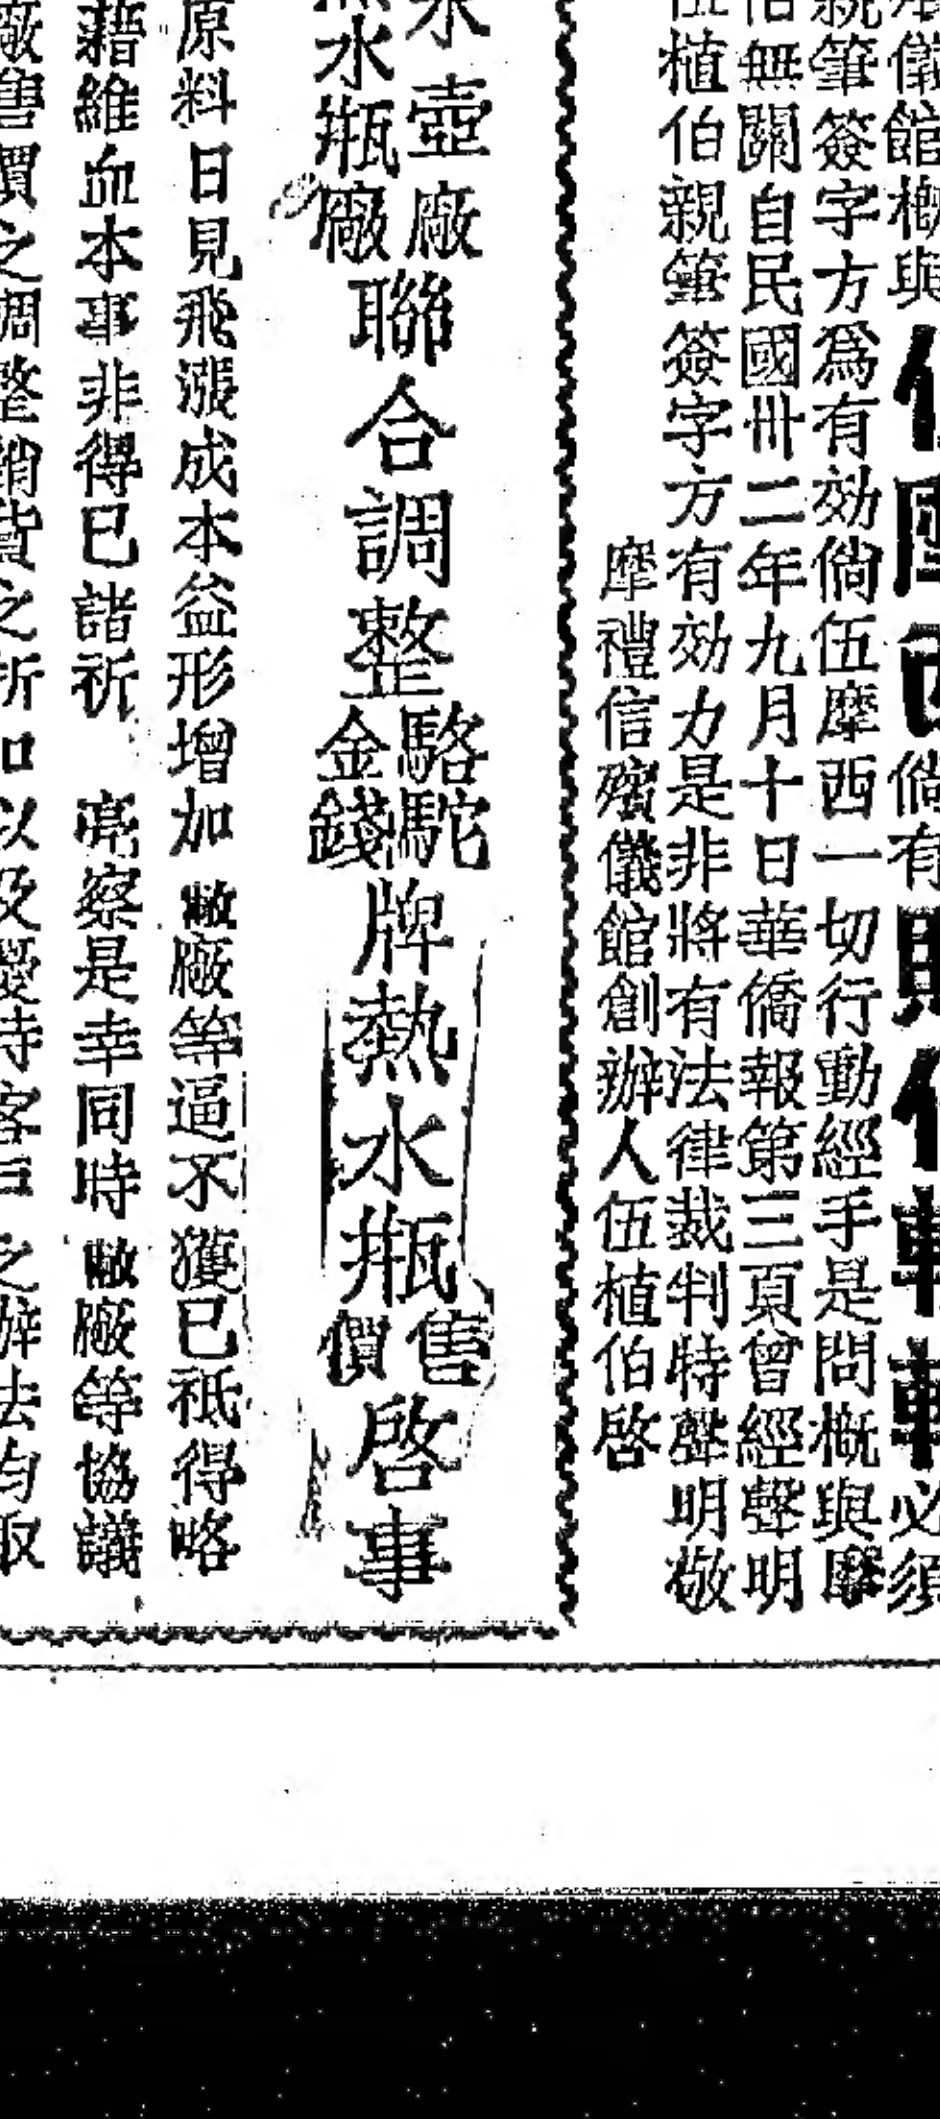 儀館概與
倘有
必須
親筆簽字方爲有効倘伍摩西一切行動經手是問概與摩
伯無關自民國卅二年九月十日華僑報第三頁曾經聲明
伍植伯親筆簽字方有効力是非將有法律裁判特聲明敬
摩禮信殯儀館創辦人伍植伯啓
水壺廠
熱水瓶廠
聯合調整
駱駝
金錢
牌熱水瓶
售
價
啓事
原料日見飛漲成本益形增加敝廠等逼不獲已祇得略
藉維血本事非得已諸祈 亮察是幸同時敝廠等協議
廠售價之調整銷貨之折扣以及優待客戶之辦法均取